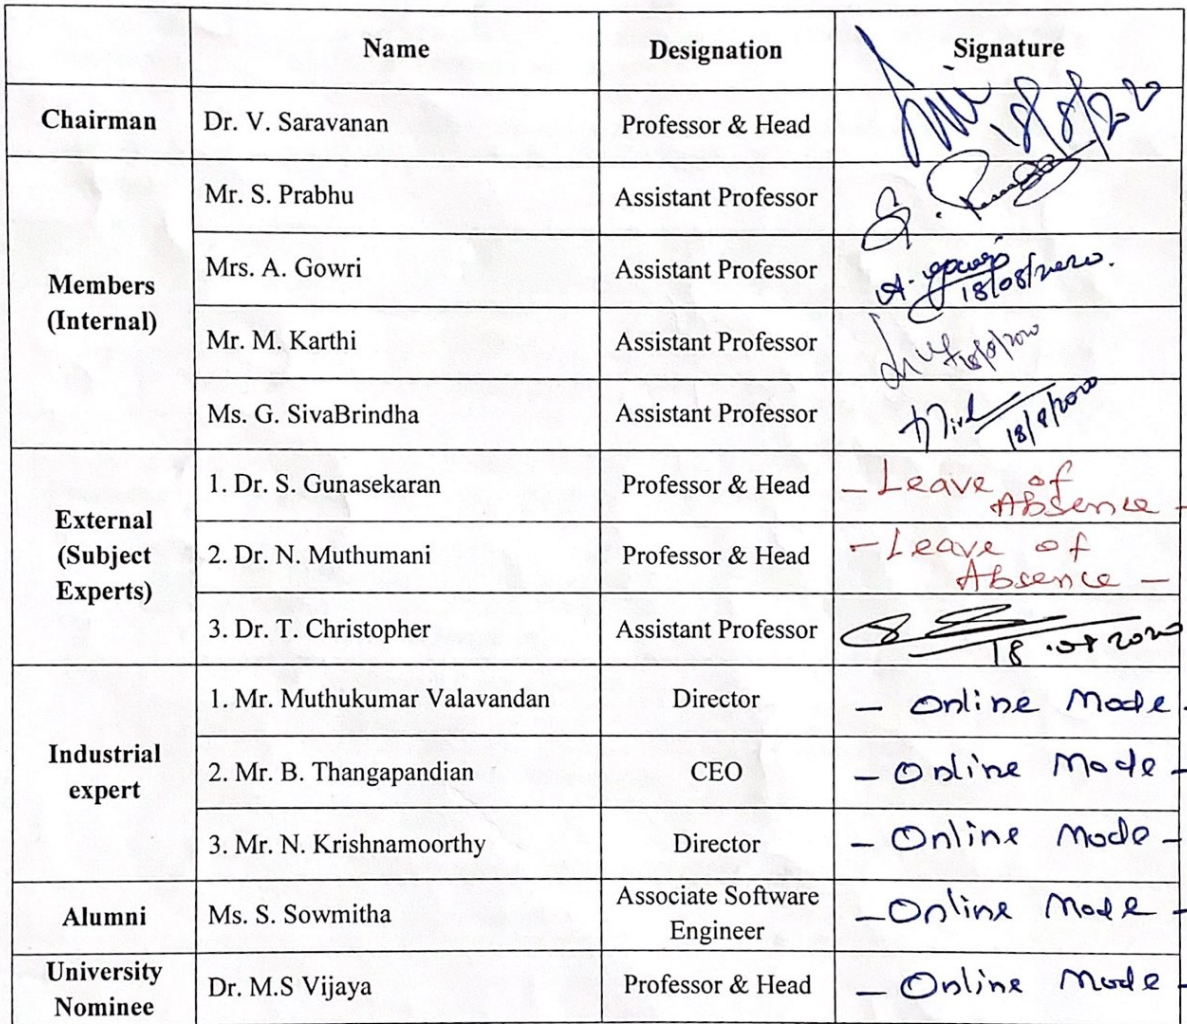 Name Designation Signature
Chairman Dr. V. Saravanan Professor & Head 18/8/2020
Members
(Internal)
Mr. S. Prabhu Assistant Professor
Mrs. A. Gowri Assistant Professor A. Gowri
18/08/2020.
Mr. M. Karthi Assistant Professor
Ms. G. SivaBrindha Assistant Professor
18/8/2020
External
(Subject
Experts)
1. Dr. S. Gunasekaran Professor & Head - Leave of
Absence -
2. Dr. N. Muthumani Professor & Head - Leave of
Absence -
3. Dr. T. Christopher Assistant Professor
18.08.2020
Industrial
expert
1. Mr. Muthukumar Valavandan Director - Online Mode -
2. Mr. B. Thangapandian CEO - Online Mode -
3. Mr. N. Krishnamoorthy Director - Online Mode -
Alumni Ms. S. Sowmitha Associate Software
Engineer - Online Mode -
University
Nominee Dr. M.S Vijaya Professor & Head - Online Mode -